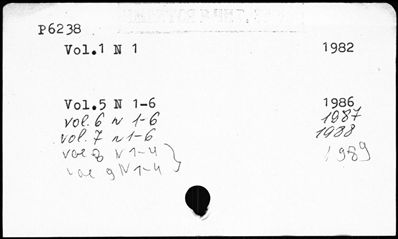 P6238
Vol.1 N 1 1982
Vol.5 N 1-6 1986
vol. 6 n 1-6 1987
vol. 7 n 1-6 1988
vol 8 N 1-4 1989
vol 9 N 1-4